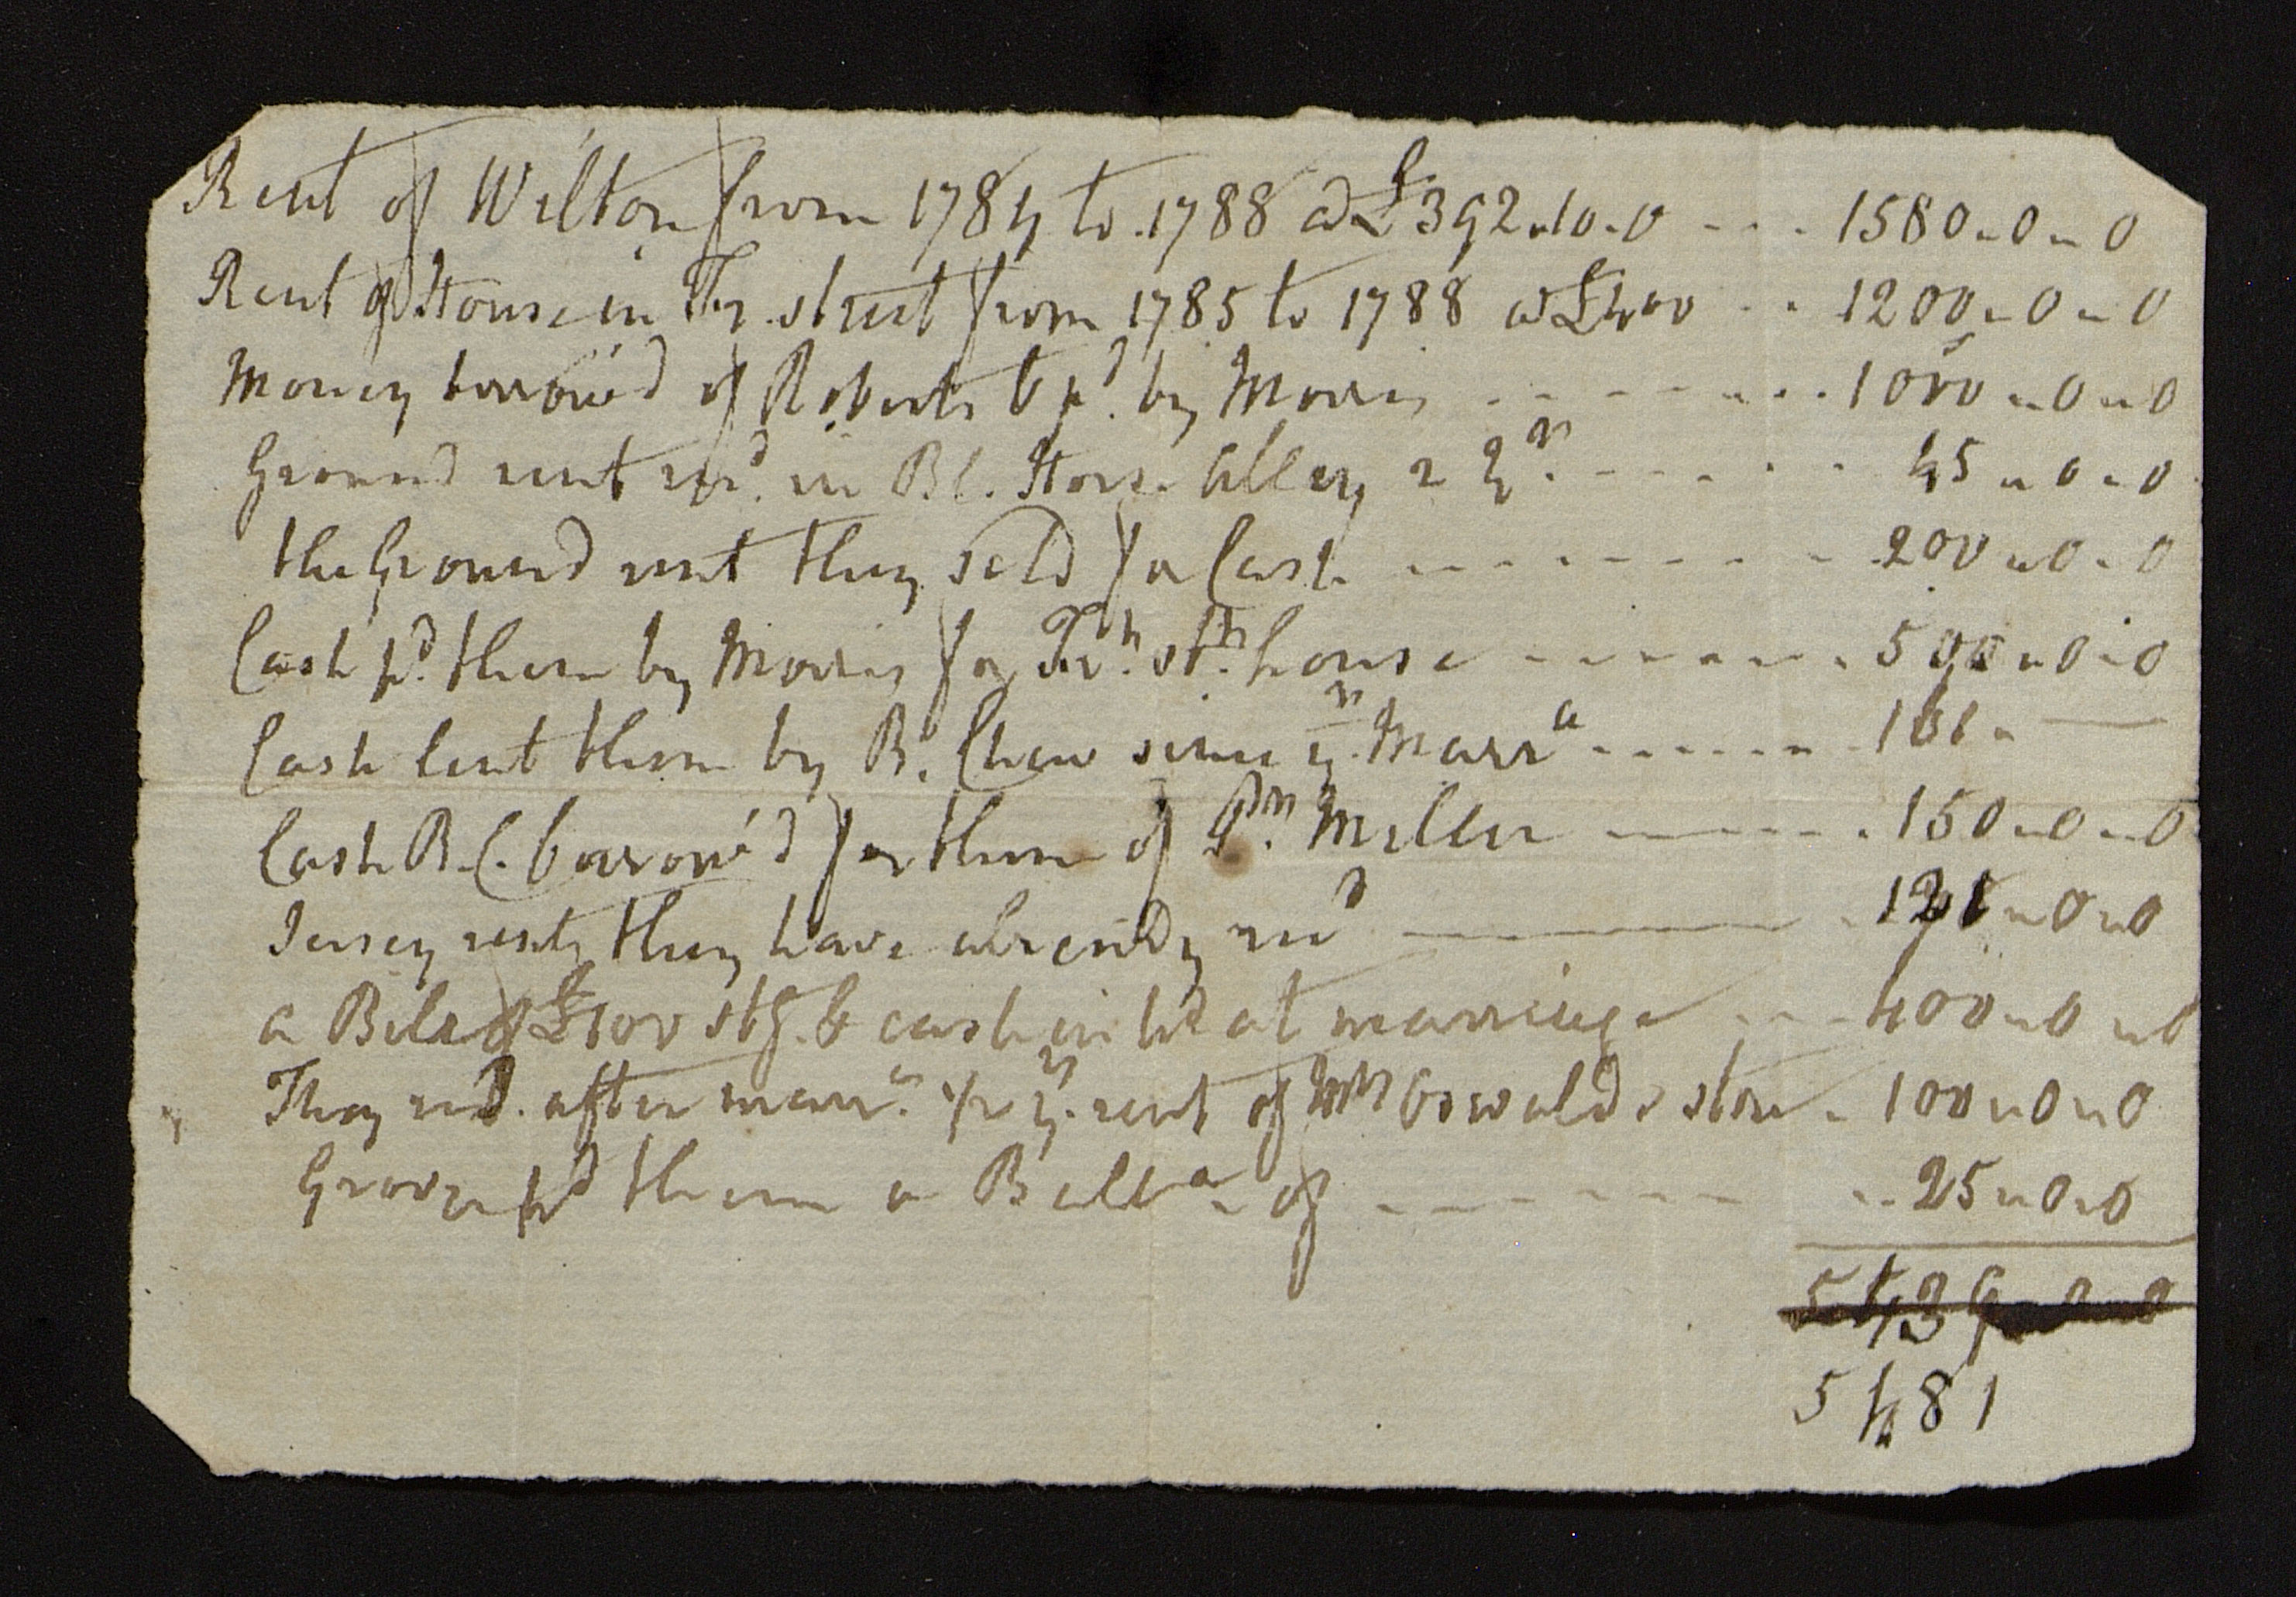 Rent of Wilton from 1784 to .1788 @ £392..10..0 - - - 1580..0..0
Rent of House in Fr. street from 1785 to 1788 @ £400 - - 1200..0..0
Money borrow'd of Roberts & pd. by Morris - - - - - - - 1000..0..0
Ground rent recd. in Bl. Horse Alley 2 yrs. - - - - - - 45..0..0
the Ground rent they sold for Cash - - - - - - - - 200..0..0
Cash pd. them by Morris for Frt. stt. house - - - - - - 500..0..0
Cash lent them by B. Chew since yr. Marra - - - - - 161..
Cash B.C. borrow'd for them of Wm. Miller - - - - - 150..0..0
Jersey rents they have already recd - - - 0..0
a Bill of £100 stg. & cash in hd at marriage - - - 400..0..0
They recd. after marra. ye rent of Oswalds store - 100..0..0
Grover pd them a Balla. of - - - - - - - 25..0..0
5439..0..0
5481